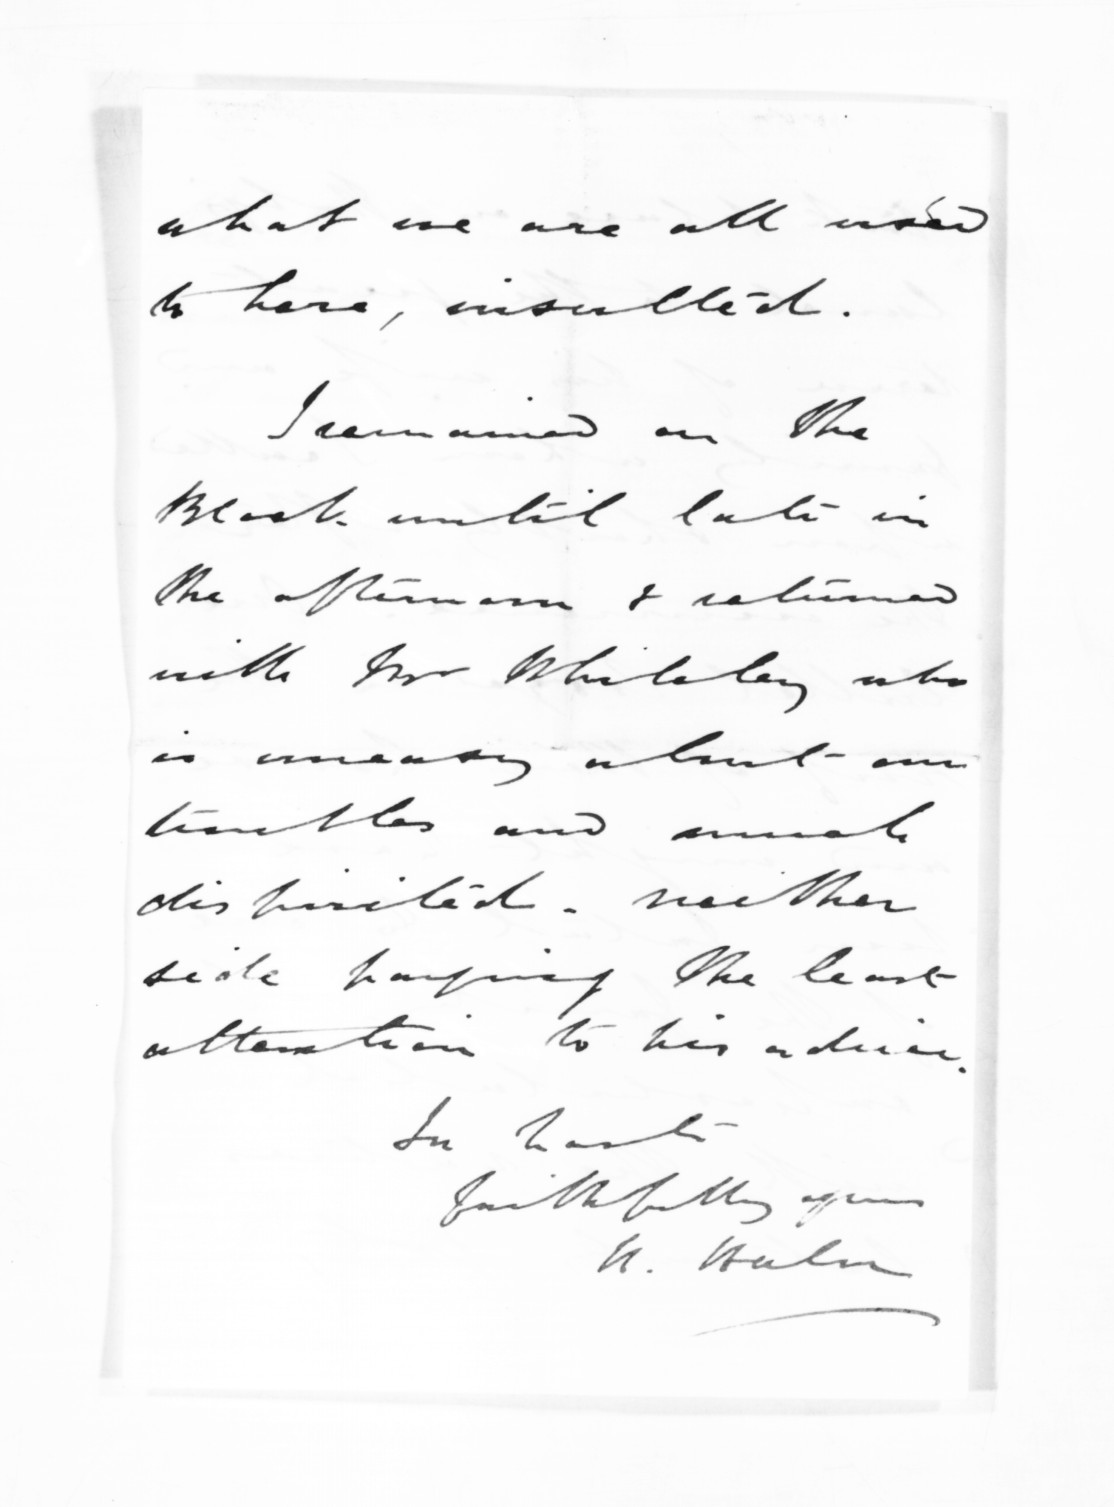 what we are all used
to here, insulted.
I remained on the
Block until late in
the afternoon & returned
with Mr Whiteley who
is uneasy about our
troubles and much
dispirited - neither
side paying the least
attention to his advice.
In haste
faithfully yours
H. Halse